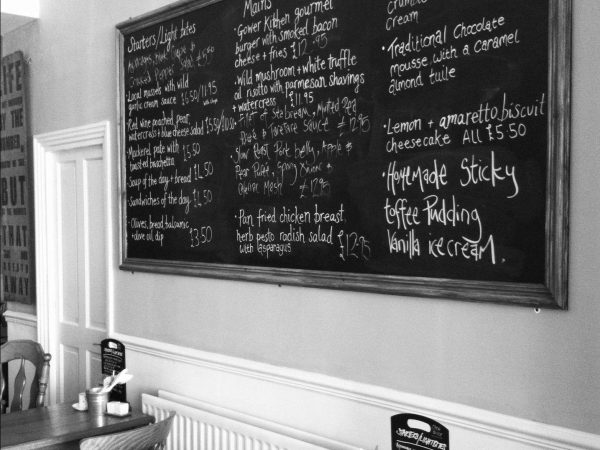 Starters/Light bites
£5.50
Local mussels with wild
garlic cream sauce £6.50/11.95
Red wine poached pear,
watercress + blue cheese salad £5.50/10.50
Mackerel pate with £5.50
toasted bruschetta
Soup of the day + bread £4.50
Sandwiches of the day £4.50
Olives, bread balsamic
+ olive oil dip £3.50
Mains
Gower Kitchen gourmet
burger with smoked bacon
cheese + fries £12.95
Wild mushroom + white truffle
oil risotto with parmesan shavings
+ watercress £11.95
Fillet of Sea bream, Mustard
Sauce £12.95
Slow Roast Pork belly, Apple &
Pear Puree, Spring
Mash £12.95
Pan fried chicken breast,
herb pesto radish salad £12.95
with asparagus
crumble
cream
Traditional Chocolate
mousse with a caramel
almond tuile
Lemon + amaretto biscuit
cheesecake All £5.50
Homemade Sticky
toffee Pudding
Vanilla ice cream.
LIFE
BUT